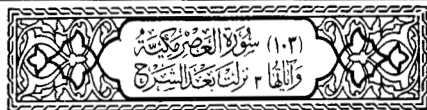 (١٠٣) سُورَةُ العَصْرِ مَكِيَّة
وَآيَاتُهَا ٣ نَزَلَتْ بَعْدَ الشَّرْح